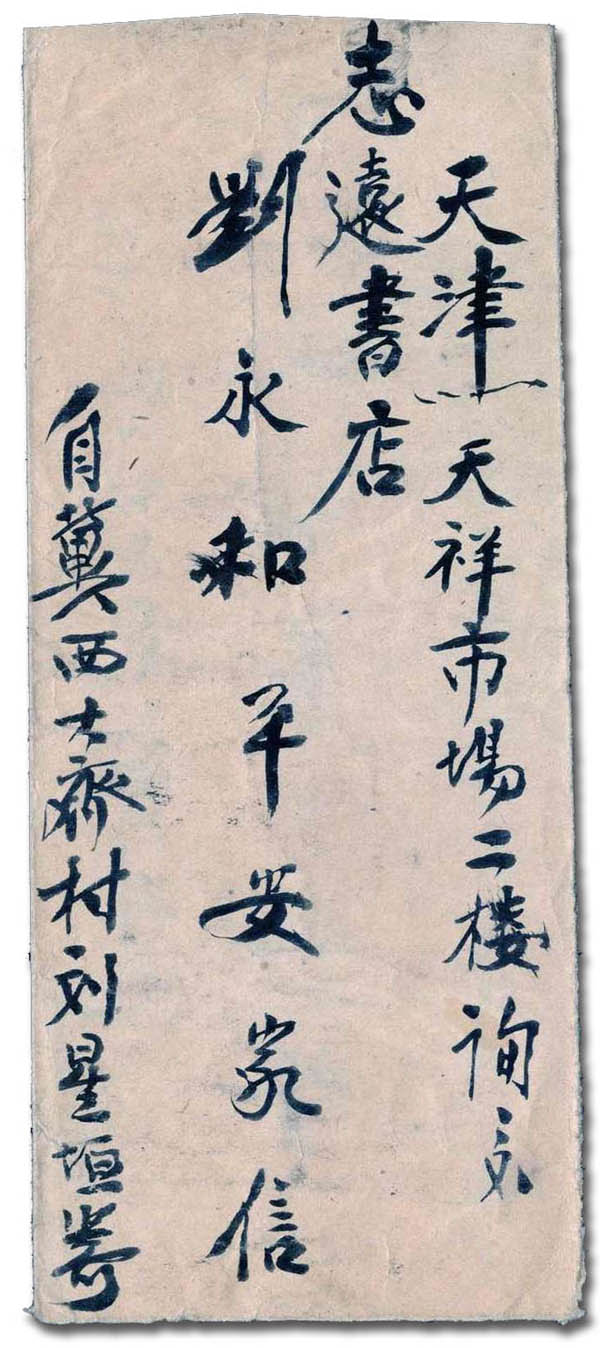 天津天祥市場二楼询交
志遠書店
劉永和平安家信
自冀西大齊村刘星垣寄